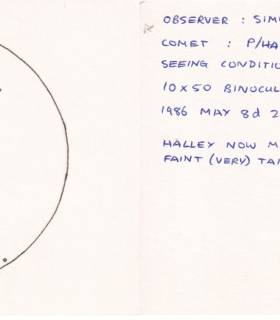 OBSERVER : SIM
COMET : P/HA
SEEING CONDITIO
10 x 50 BINOCUL
1986 MAY 8d 2
HALLEY NOW M
FAINT (VERY) TAI